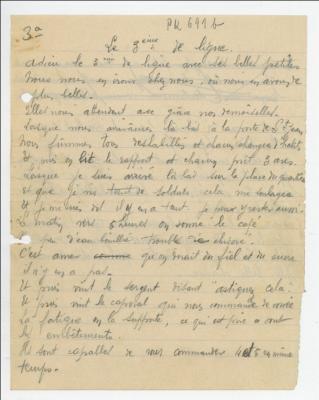 PK 691 b
3a
Le 3ème de ligne.
Adieu le 3me de ligne avec ses belles petites
nous nous en irons chez nous, où nous en avons de
plus belles.
Elles nous attendent avec nos demoiselles.
Lorsque nous arrivâmes là bas à la porte de St Jean,
nous fûmes tous déshabillés et chacun changea d'habit,
et puis on lit le rapport et chacun prit 3 ares.
Lorsque je suis arrivé là bas sur la place du quartier
et que je vis tant de soldats cela me soulagea
et je me dis s'il y en a tant je pourrai y rester aussi.
Le matin vers 5 heures on sonne le café
un peu d'eau bouillie trouble de chicorée.
C'est amer comme qu'on dirait du fiel et du sucre
il n'y en a pas.
Et puis vient le sergent disant "astiquez cela.
Et puis vient le caporal qui nous commande de corvée
la fatigue on la supporte, ce qui est pire ce sont
les embêtements.
Ils sont capables de vous commander 4 et 5 en même
temps.